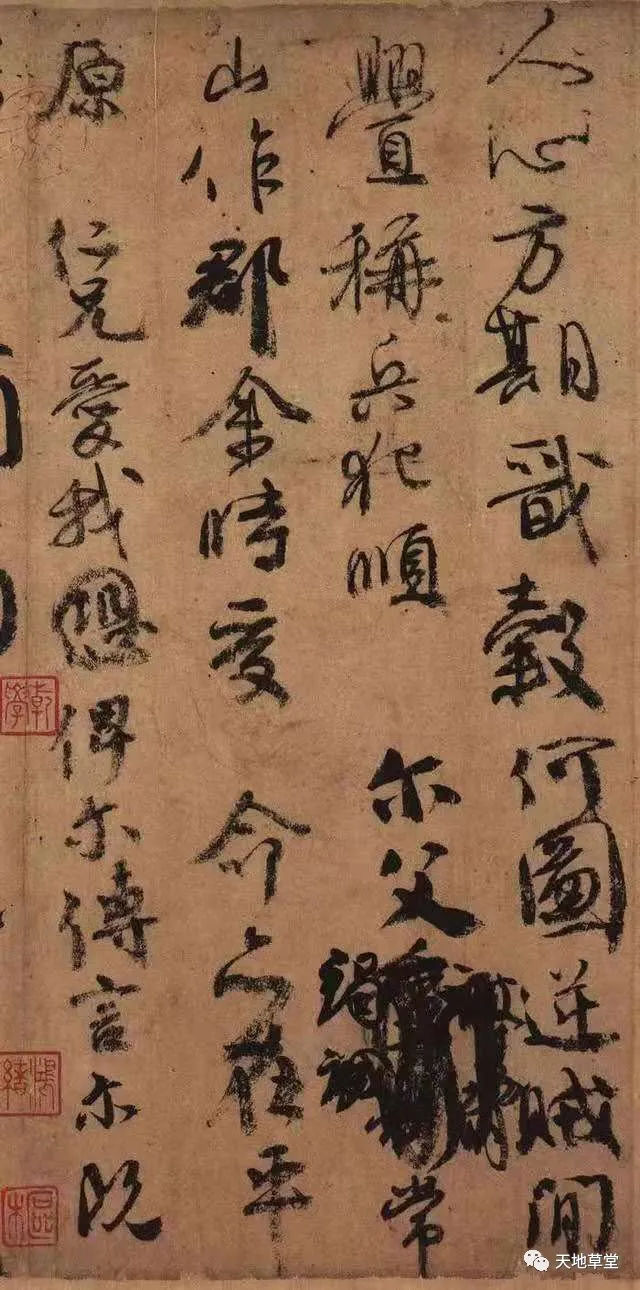 人心方期戩穀何圖逆賊間
舋稱兵犯順 尔父竭誠常
山作郡余時受 命亦在平
原 仁兄愛我俾尔傳言尔既
乾學
鴻緒
天地草堂